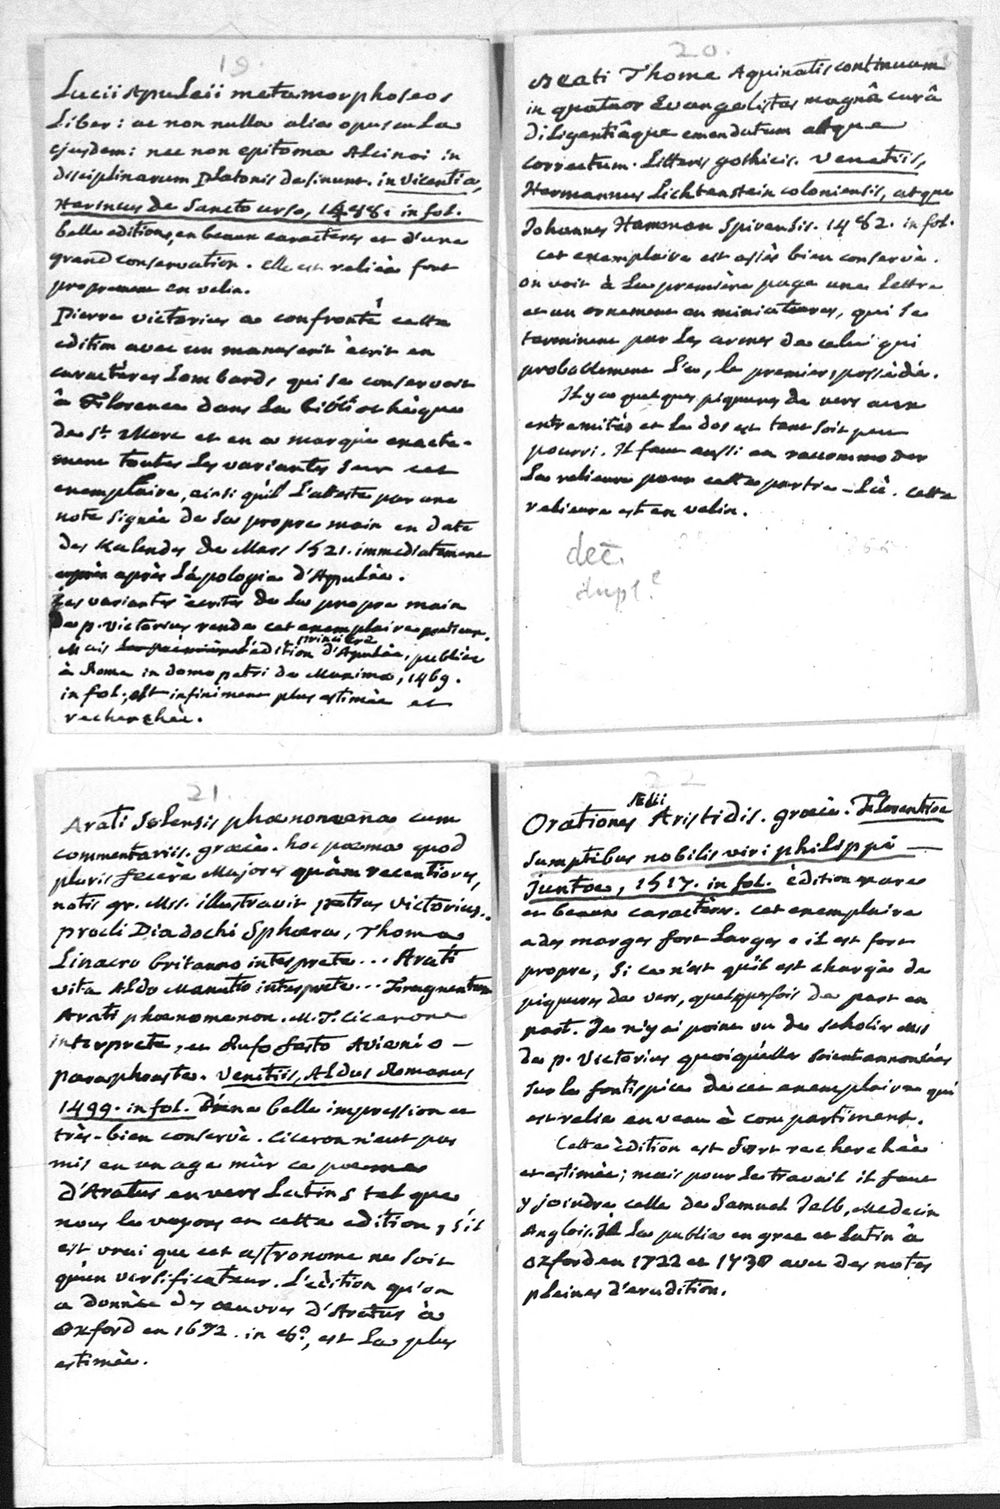 19.
Lucii Apuleii metamorphoseos
Liber: ac non nulla alia opuscula
ejusdem: nec non epitoma Alcinoi in
disciplinarum Platonis desinunt. in Vicentia,
Henricus de Sancto urso, 1488. in fol.
belle edition, en beaux caracteres et d'une
grand conservation. Elle est reliée fort
proprement en velin.
Pierre victorius a confronté cette
edition avec un manuscrit écrit en
caractères Lombards qui se conservoit
à Florence dans la bibliothèque
de St. Marc et en a marqué exacte-
ment toutes les variantes sur cet
exemplaire, ainsi qu'il l'atteste par une
note signée de sa propre main en date
des Kalendes de Mars 1521. immediatement
après l'apologie d'Apulée.
Les variantes écrites de la propre main
de p. victorius rende cet exemplaire pretieux.
Mais l'édition princière d'Apulée, publiée
à Rome in domo petri de Maximo, 1469.
in fol, est infiniment plus estimée et
recherchée.
20.
Beati Thome Aquinatis continuum
in quatuor Evangelistas magnâ curâ
diligentiâque emendatum attque
correctum. Litteris gothicis. Venetiis,
Hermannus Lichtenstein coloniensis, atque
Johannes Hamman Spirensis. 1482. in fol.
cet exemplaire est assés bien conservé.
on voit à la première page une lettre
et un ornement en miniatures, qui se
terminent par les armes de celui qui
probablement l'a, le premier, possédé.
Il y a quelques piqures de vers aux
extremités et le dos est tant soit peu
pourri. Il faut aussi en raccommoder
la relieure pour cette partie-là. cette
relieure est en velin.
dec.
dupl.e
21.
Arati Solensis phœnomena cum
commentariis. græcè. hoc poema quod
pluris fecere Majores quàm recentiores,
notis gr. Mss. illustravit petrus Victorius.
procli Diadochi Sphæra, Thoma
Linacro britanno interprete... Arati
vita Aldo Manutio interprete... Fragmentum
Arati phœnomenon. M. T. Cicerone
interprete, et Rufo festo Avienio -
paraphraste. Venetiis, Aldus Romanus
1499. in fol. D'une belle impression et
très-bien conservé. Ciceron n'eut pas
mis en un age mûr ce poeme
d'Aratus en vers Latins tel que
nous le voyons en cette edition, s'il
est vrai que cet astronome ne soit
qu'un versificateur. L'édition qu'on
a donnée des œuvres d'Aratus à
Oxford en 1672. in 8º, est la plus
estimée.
22
Orationes Ælii Aristidis. græcè. Florentiæ
Sumptibus nobilis viri philippi -
juntæ, 1517. in fol. édition rare
en beaux caractères. cet exemplaire
a des marges fort larges e il est fort
propre, si ce n'est qu'il est chargé de
piqures de vers, quelquefois de part en
part. Je n'y ai point vu de scholies Mss
de p. Victorius quoiqu'elles soient annoncées
sur le fontispice de cet exemplaire qui
est relié en veau à compartiment.
Cette édition est fort recherchée
et estimée; mais pour le travail il faut
y joindre celle de Samuel Jelb, Medecin
Anglois. Il la publia en grec et latin à
Oxford en 1722 et 1730 avec des notes
pleines d'erudition.